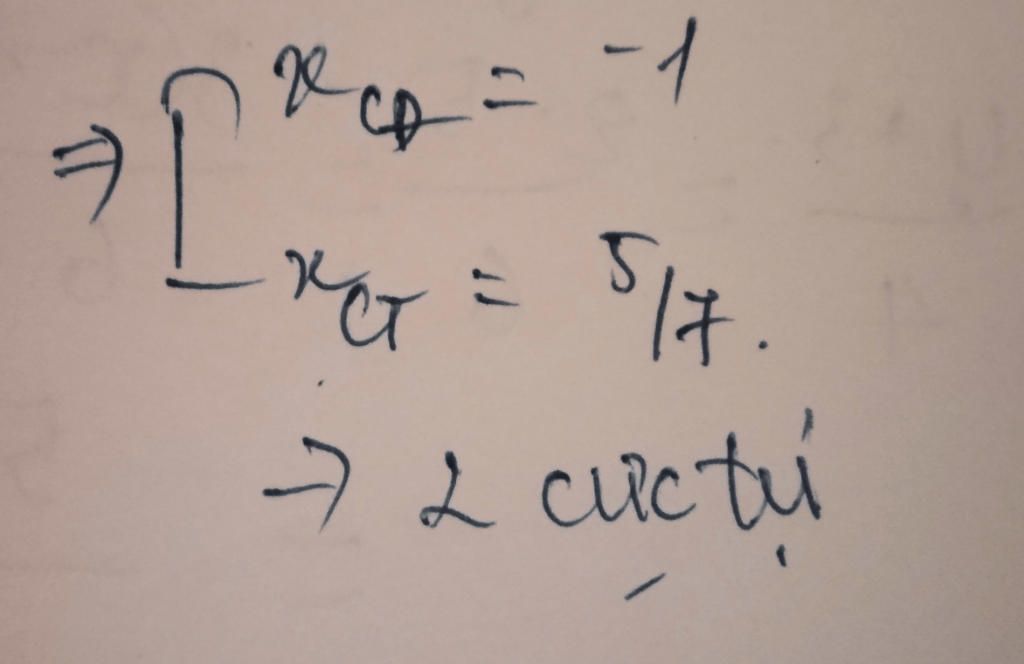 ⇒ [ x_CĐ = -1
x_CT = 5/7.
→ 2 cực trị